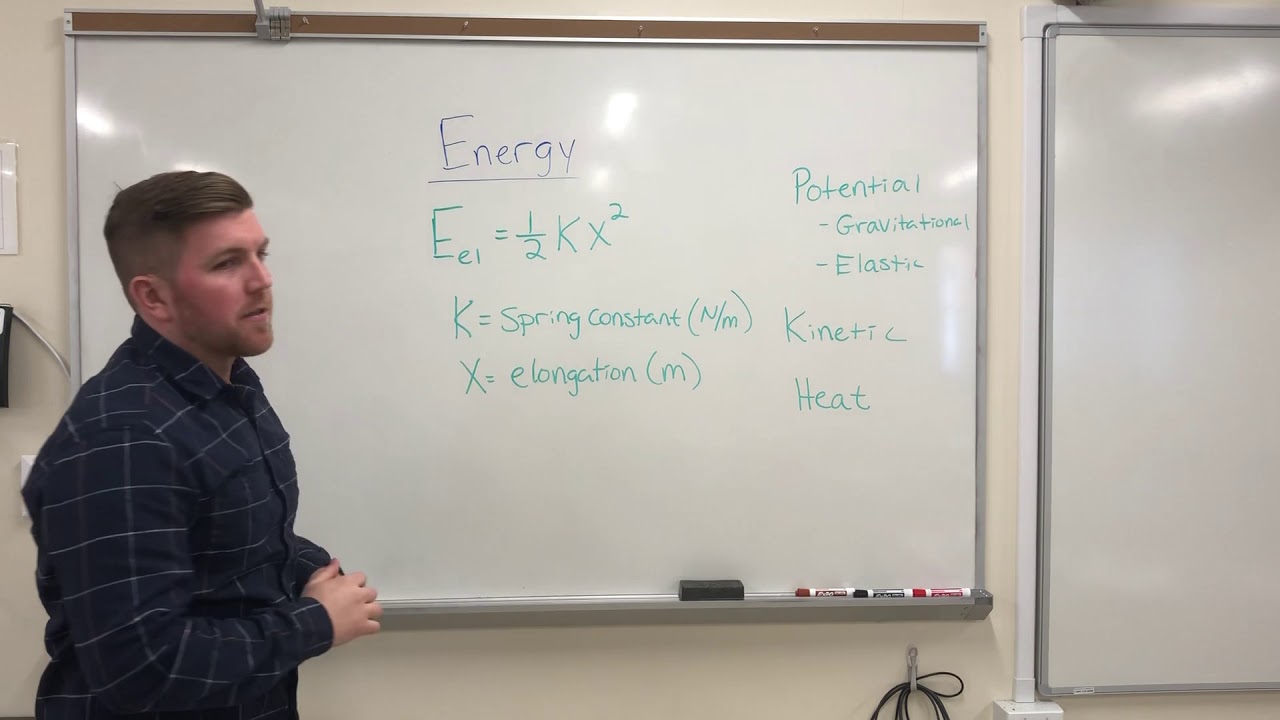 Energy
E el = 1/2 K X²
K = Spring constant (N/m)
X = elongation (m)
Potential
- Gravitational
- Elastic
Kinetic
Heat